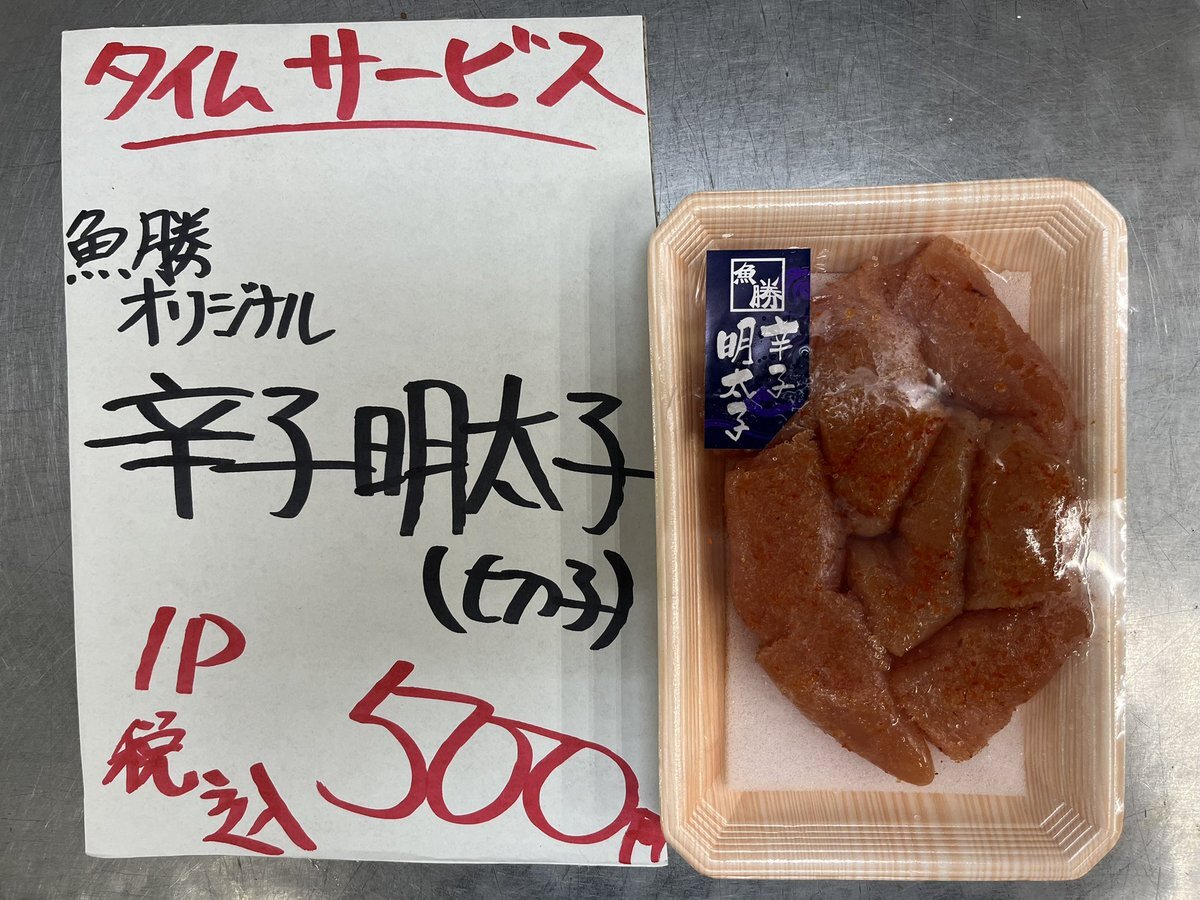 タイムサービス
魚勝
オリジナル
辛子明太子
(切子)
1P
税込
500円
魚勝
辛子
明太子